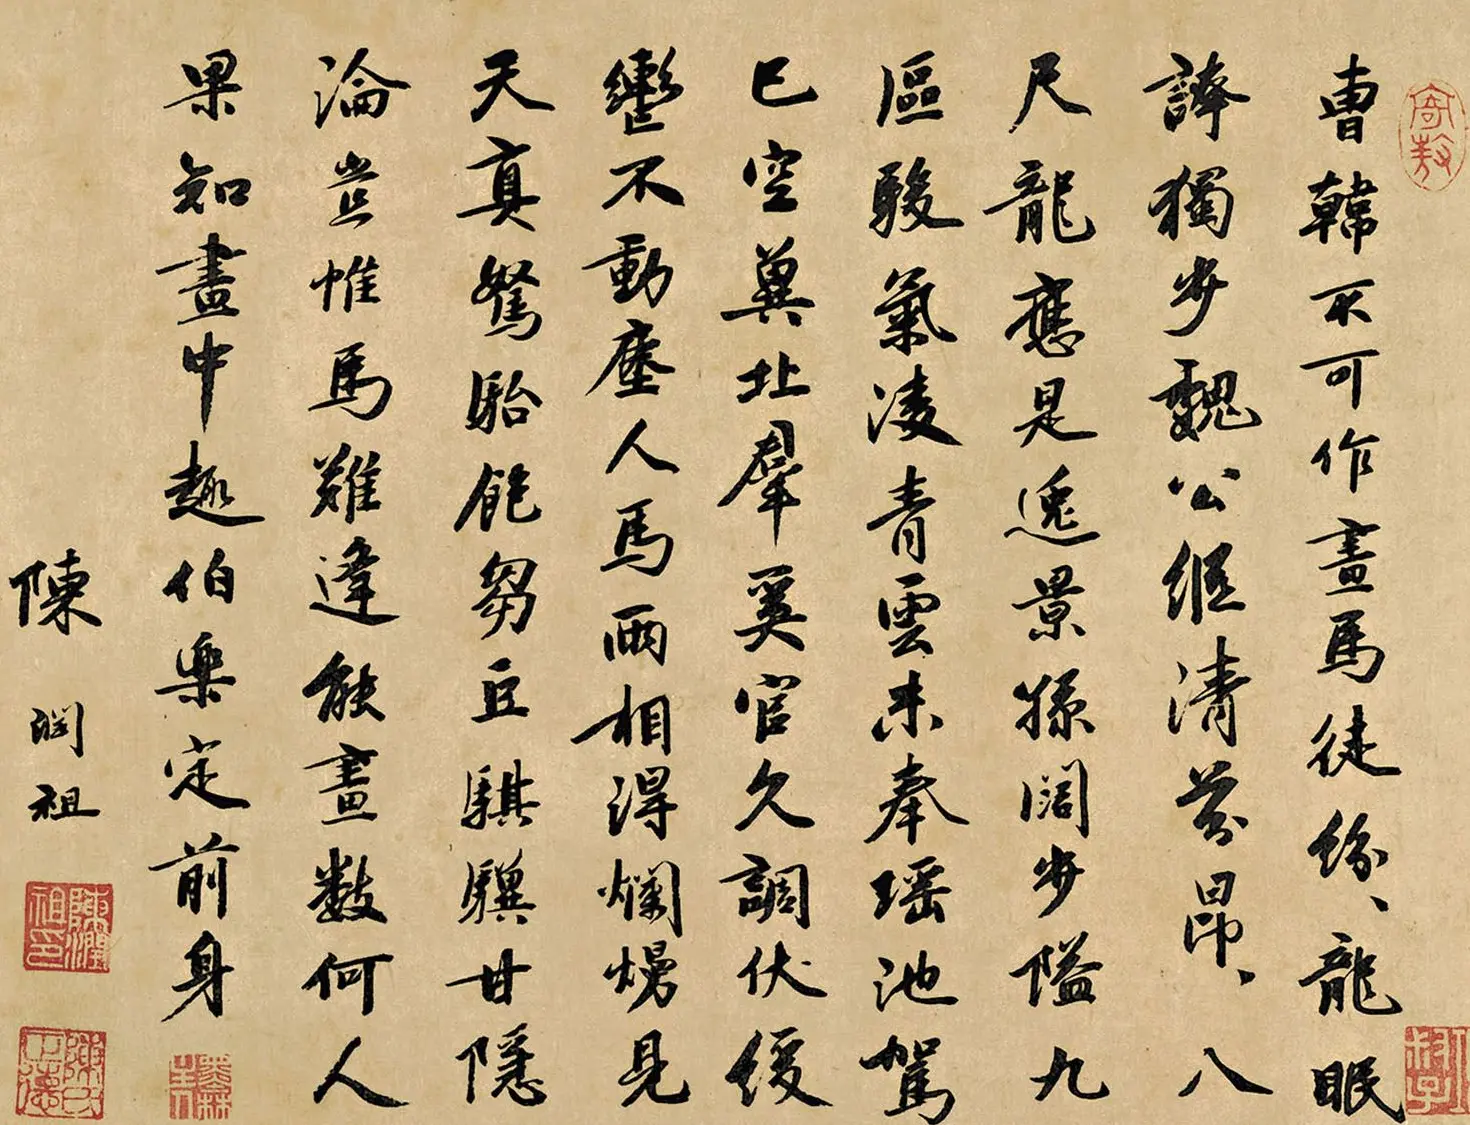 曹韓不可作畫馬徒紛、龍眠
誇獨步魏公繼清芬昂、八
尺龍應是逸景孫闊步隘九
區駿氣凌青雲未奉瑤池駕
已空冀北羣奚官久調伏緩
轡不動塵人馬兩相得爛熳見
天真駑駘飽芻豆騏驥甘隱
淪豈惟馬難逢能畫數何人
果知畫中趣伯樂定前身
陳潤祖
陳潤祖印